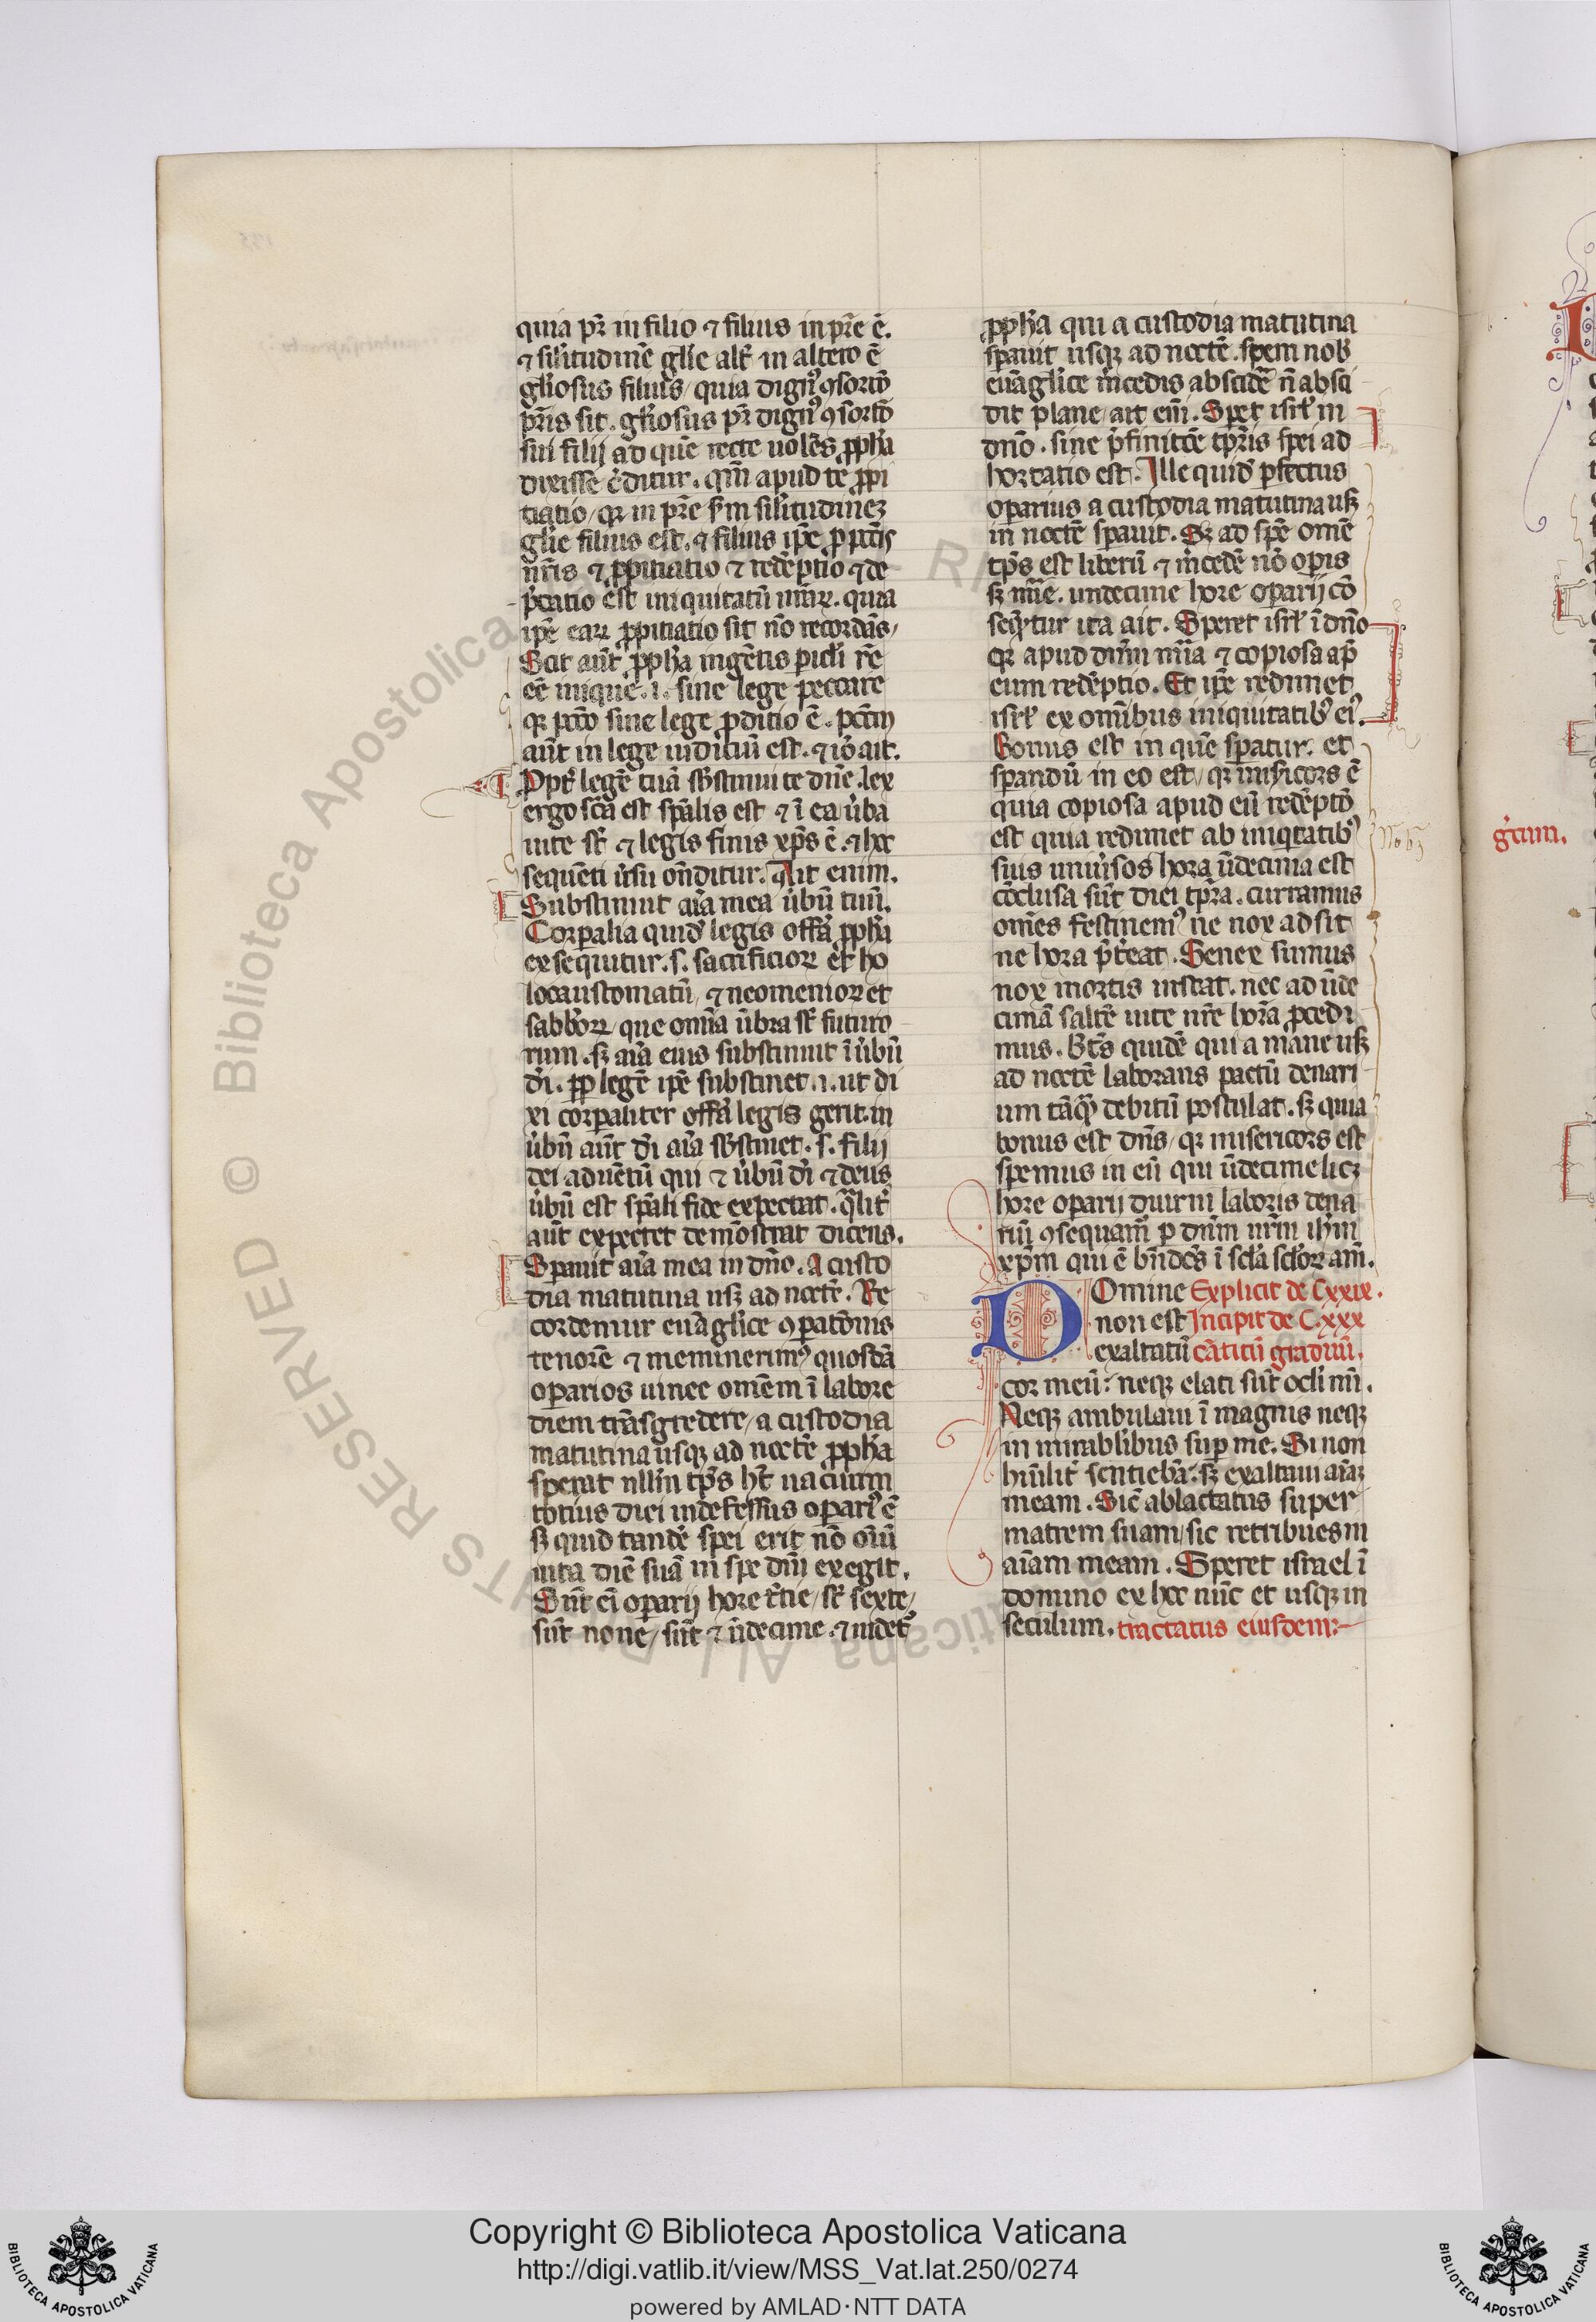 quia pr̄ in filio ⁊ filius in pr̄e ē.
⁊ sil'itudinē gl'ie alt' in altero ē
gl'iosus filius / quia dign⁹ ꝯsorcō
pr̄is sit. gl'iosus pr̄ dign⁹ ꝯsortō
sui filij ad quē recte uolēs ꝓph'a
dixisse c'ditur. qm̄ apud te ꝓpi
tiatio / qꝛ in pr̄e scḋm sil'itudineꝫ
gl'ie filius est. ⁊ filius ip̄e ꝓ pctīs
nr̄is ⁊ ꝓpitiatio ⁊ redēptio ⁊ de
p'catio est iniquitatū nr̄aꝝ. quia
ip̄e eaꝝ ꝓpitiatio sit nō recordās /
Scit aūt ꝓph'a ingētis pic'li rē
eē inique .i. sine lege peccare
qꝛ pctō sine lege ꝑditio ē. pctm̄
aūt in lege iudiciū est. ⁊ iō ait.
Ꝓpt' legē tuā sb̄stinui te dn̄e. lex
ergo sc̄a est sp̄alis est ⁊ ī ea u'ba
uite st̄ ⁊ legis finis xp̄s ē. ⁊ hoc
sequēti u'su on̄ditur. Ait enim.
Substinuit aīa mea u'bū tuū.
Corꝑalia quid' legis offā ꝓph'a
exsequitur. s. sacrificioꝝ et ho
locaustomatū / ⁊ neomenioꝝ et
sabb'oꝝ / que om̄ia ūbra st̄ futuro
rum. sꝫ aīa eius substinuit ī u'bū
dī. ꝓp legē ip̄e substinet. i. ut di
xi corꝑaliter offā legis gerit. in
u'bū aūt dī aīa sb̄stinet. s. filij
dei aduētū qui ⁊ u'bū dī ⁊ deus
u'bū est sp̄ali fide expectat. Qualit'
aūt expectet demōstrat dicens.
Sꝑauit aīa mea in dn̄o. A custo
dia matutina usꝫ ad noctē. Re
cordemur euāgl'ice ꝯparatōnis
tenorē ⁊ meminerim⁹ quosdā
oꝑarios uinee omēm ī labore
diem trāsgredere / a custodia
matutina usqꝫ ad noctē ꝓph'a
sperat nll'm tp̄s h̄t uacuum
totius diei indefessus oꝑari⁹ ē
sꝫ quid tandē spei erit nō oīū
uita diē suā in spe dn̄i exegit.
Sūt ei oꝑarij hore t'tie / st̄ sexte /
sūt none / sūt ⁊ ūdecime. ⁊ uidet⁹
ꝓph'a qui a custodia matutina
sꝑauit usqꝫ ad noctē. spem nob̄
euāgl'ice m'cedis abscidē n̄ absci
dit plane / ait eni. Spet isrl' in
dn̄o. sine p'finitōe tp̄ris spei ad
hortatio est. Ille quid' ꝑfectus
oꝑarius a custodia matutina usꝫ
in noctē sꝑauit. Sꝫ ad spē omē
tp̄s est liberū ⁊ m'cedē nō opis
sꝫ mīe. undecime hore oꝑarij cō
seq'tur ita ait. Speret isrl' ī dn̄o
qꝛ apud dn̄m mīa ⁊ copiosa ap̄
eum redēptio. Et ip̄e redimet
isrl' ex omībus iniquitatib⁹ ei⁹.
Bonus est in quē sꝑatur. et
sꝑandū in eo est / qꝛ mis'icors ē
quia copiosa apud eū redēptō
est quia redimet ab iniqtatib⁹
suis uniu'sos hora ūdecima est
cōclusa sūt diei tp̄ra. curramus
omēs festinem⁹ ne nox adsit
ne hora p't'eat. Senex sumus
nox mortis instat. nec ad ūde
cimā saltē uite nr̄e horā ꝓcedi
mus. Bt̄s quidē qui a mane usꝫ
ad noctē laborans pactū denari
um tāq̄ debitū postulat. sꝫ quia
bonus est dn̄s / qꝛ misericors est
speremus in eū qui ūdecime licꝫ
hore oꝑarij diurni laboris dena
riū ꝯsequam̄ ꝑ dn̄m nr̄m ih'm
xp̄m qui ē bn̄dc̄s ī sc'la sc'loꝝ am̄.
DOmine Explicit de Cxxix.
non est Incipit de C.xxx
exaltatū cāticū graduū.
cor meū: neqꝫ elati sūt oc'li mī.
Neqꝫ ambulaui ī magnis neqꝫ
in mirabl'ibus suꝑ me. Si non
hūilit' sentiebā: sꝫ exaltaui aīaꝫ
meam. Sic ablactatus super
matrem suam / sic retribues in
aīam meam. Speret israel ī
domino ex hoc nūc et usqꝫ in
seculum. tractatus eiusdem:
Copyright © Biblioteca Apostolica Vaticana
http://digi.vatlib.it/view/MSS_Vat.lat.250/0274
powered by AMLAD·NTT DATA